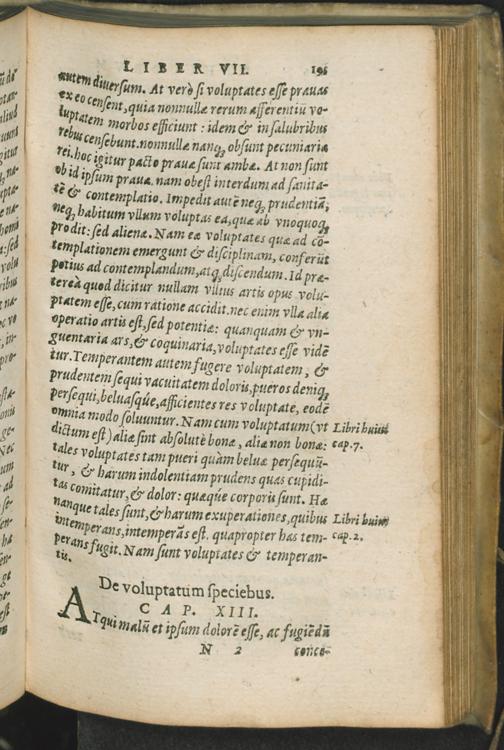 LIBER VII. 195
autem diversum. At verò si voluptates esse pravas
ex eo censent, quia nonnullæ rerum afferentiũ vo-
luptatem morbos efficiunt: idem & in salubribus
rebus censebunt. nonnullæ nanq; obsunt pecuniariæ
rei. hoc igitur pacto pravæ sunt ambæ. At non sunt
ob id ipsum pravæ. nam obest interdum ad sanita-
tẽ & contemplatio. Impedit autẽ neq; prudentiã,
neq; habitum vllum voluptas ea, quæ ab vnoquoq;
prodit: sed alienæ. Nam eæ voluptates quæ ad cõ-
templationem emergunt & disciplinam, conferũt
potius ad contemplandum, atq; discendum. Id præ-
tereà quod dicitur nullam vllius artis opus volu-
ptatem esse, cum ratione accidit. nec enim vlla alia
operatio artis est, sed potentiæ: quanquam & vn-
guentaria ars, & coquinaria, voluptates esse vidẽ
tur. Temperantem autem fugere voluptatem, &
prudentem sequi vacuitatem doloris, pueros deniq;
persequi, beluasq́ue, afficientes res voluptate, eodẽ
omnia modo soluuntur. Nam cum voluptatum (vt
dictum est) aliæ sint absolutè bonæ, aliæ non bonæ:
tales voluptates tam pueri quàm beluæ persequũ-
tur, & harum indolentiam prudens quas cupidi-
tas comitatur, & dolor: quæq́ue corporis sunt. Hæ
nanque tales sunt, & harum exuperationes, quibus
intemperans, intemperãs est. quapropter has tem-
perans fugit. Nam sunt voluptates & temperan-
tis.
Libri huius
cap. 7.
Libri huius
cap. 2.
De voluptatum speciebus.
CAP. XIII.
ATqui malũ et ipsum dolorẽ esse, ac fugiẽdũ
N 2 conce-